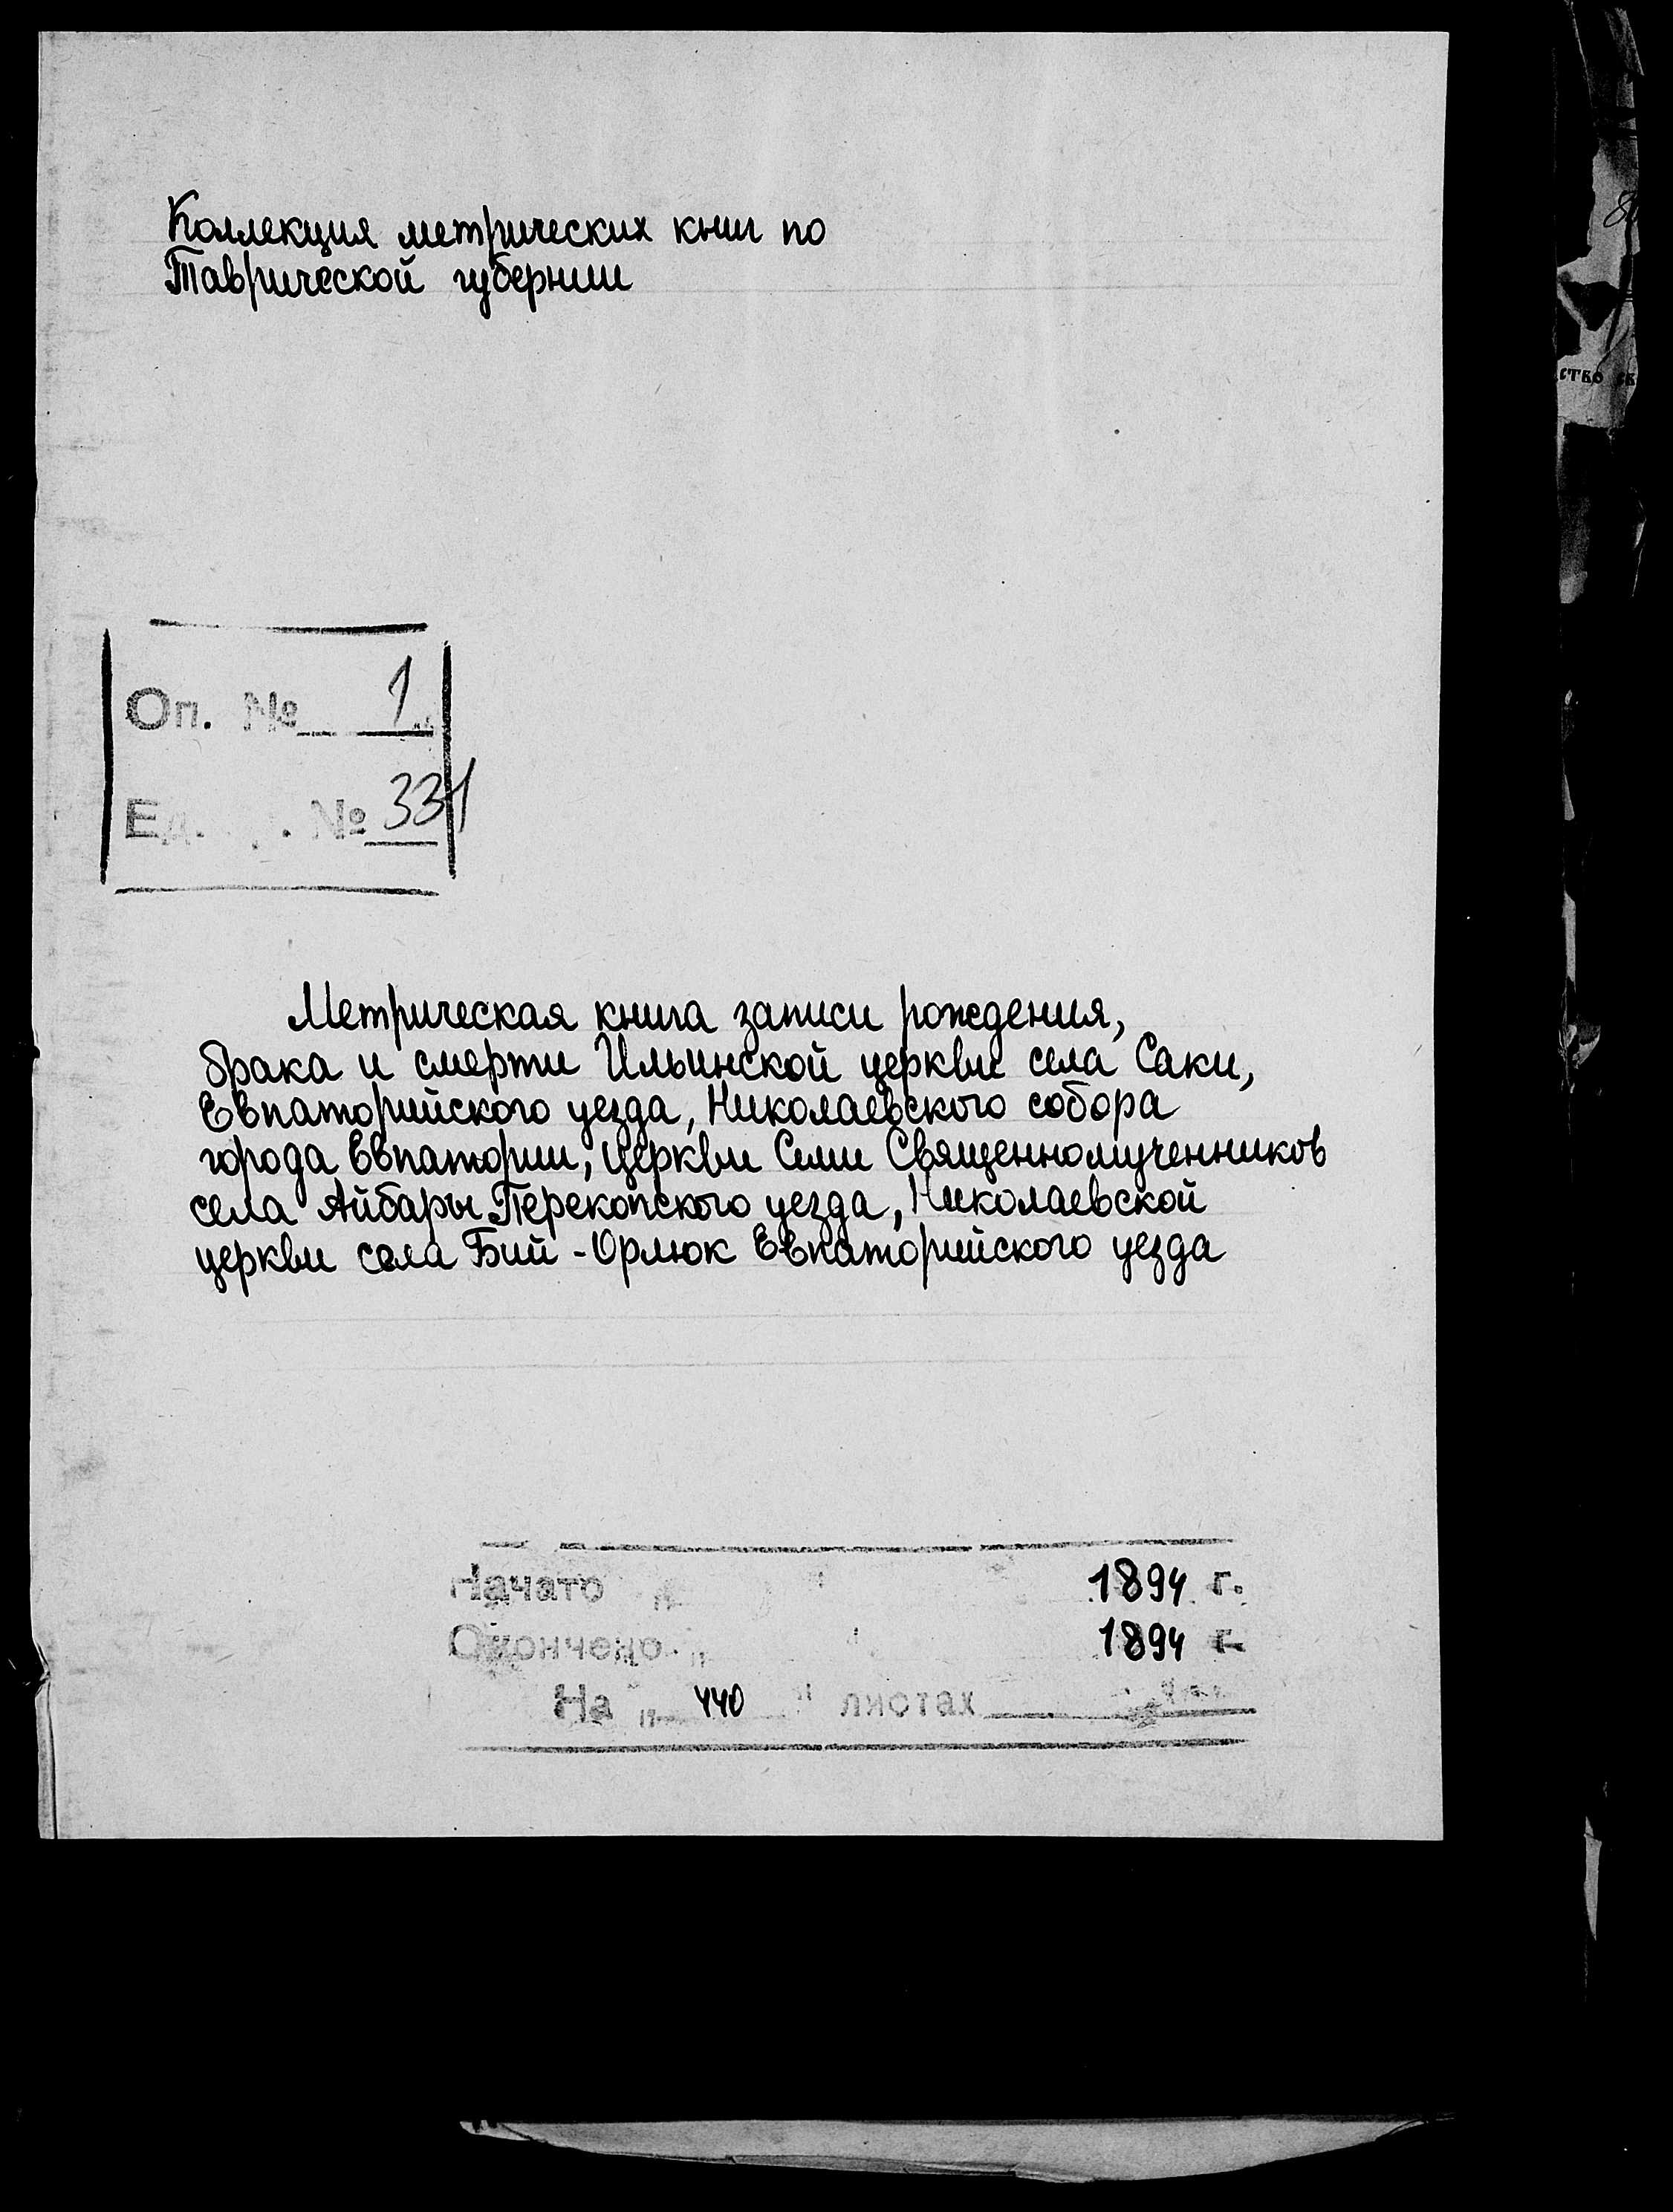 Коллекция метрических книг по
Таврической губернии
Оп. № 1
Ед. № 331
Метрическая книга записи рождения,
брака и смерти Ильинской церкви села Саки,
Евпаторийского уезда, Николаевского собора
города Евпатории, церкви Семи Священномученников
села Айбары Перекопского уезда, Николаевской
церкви села Бий-Орлюк Евпаторийского уезда
Начато 1894 г.
Окончено 1894 г.
На 440 листах
ство